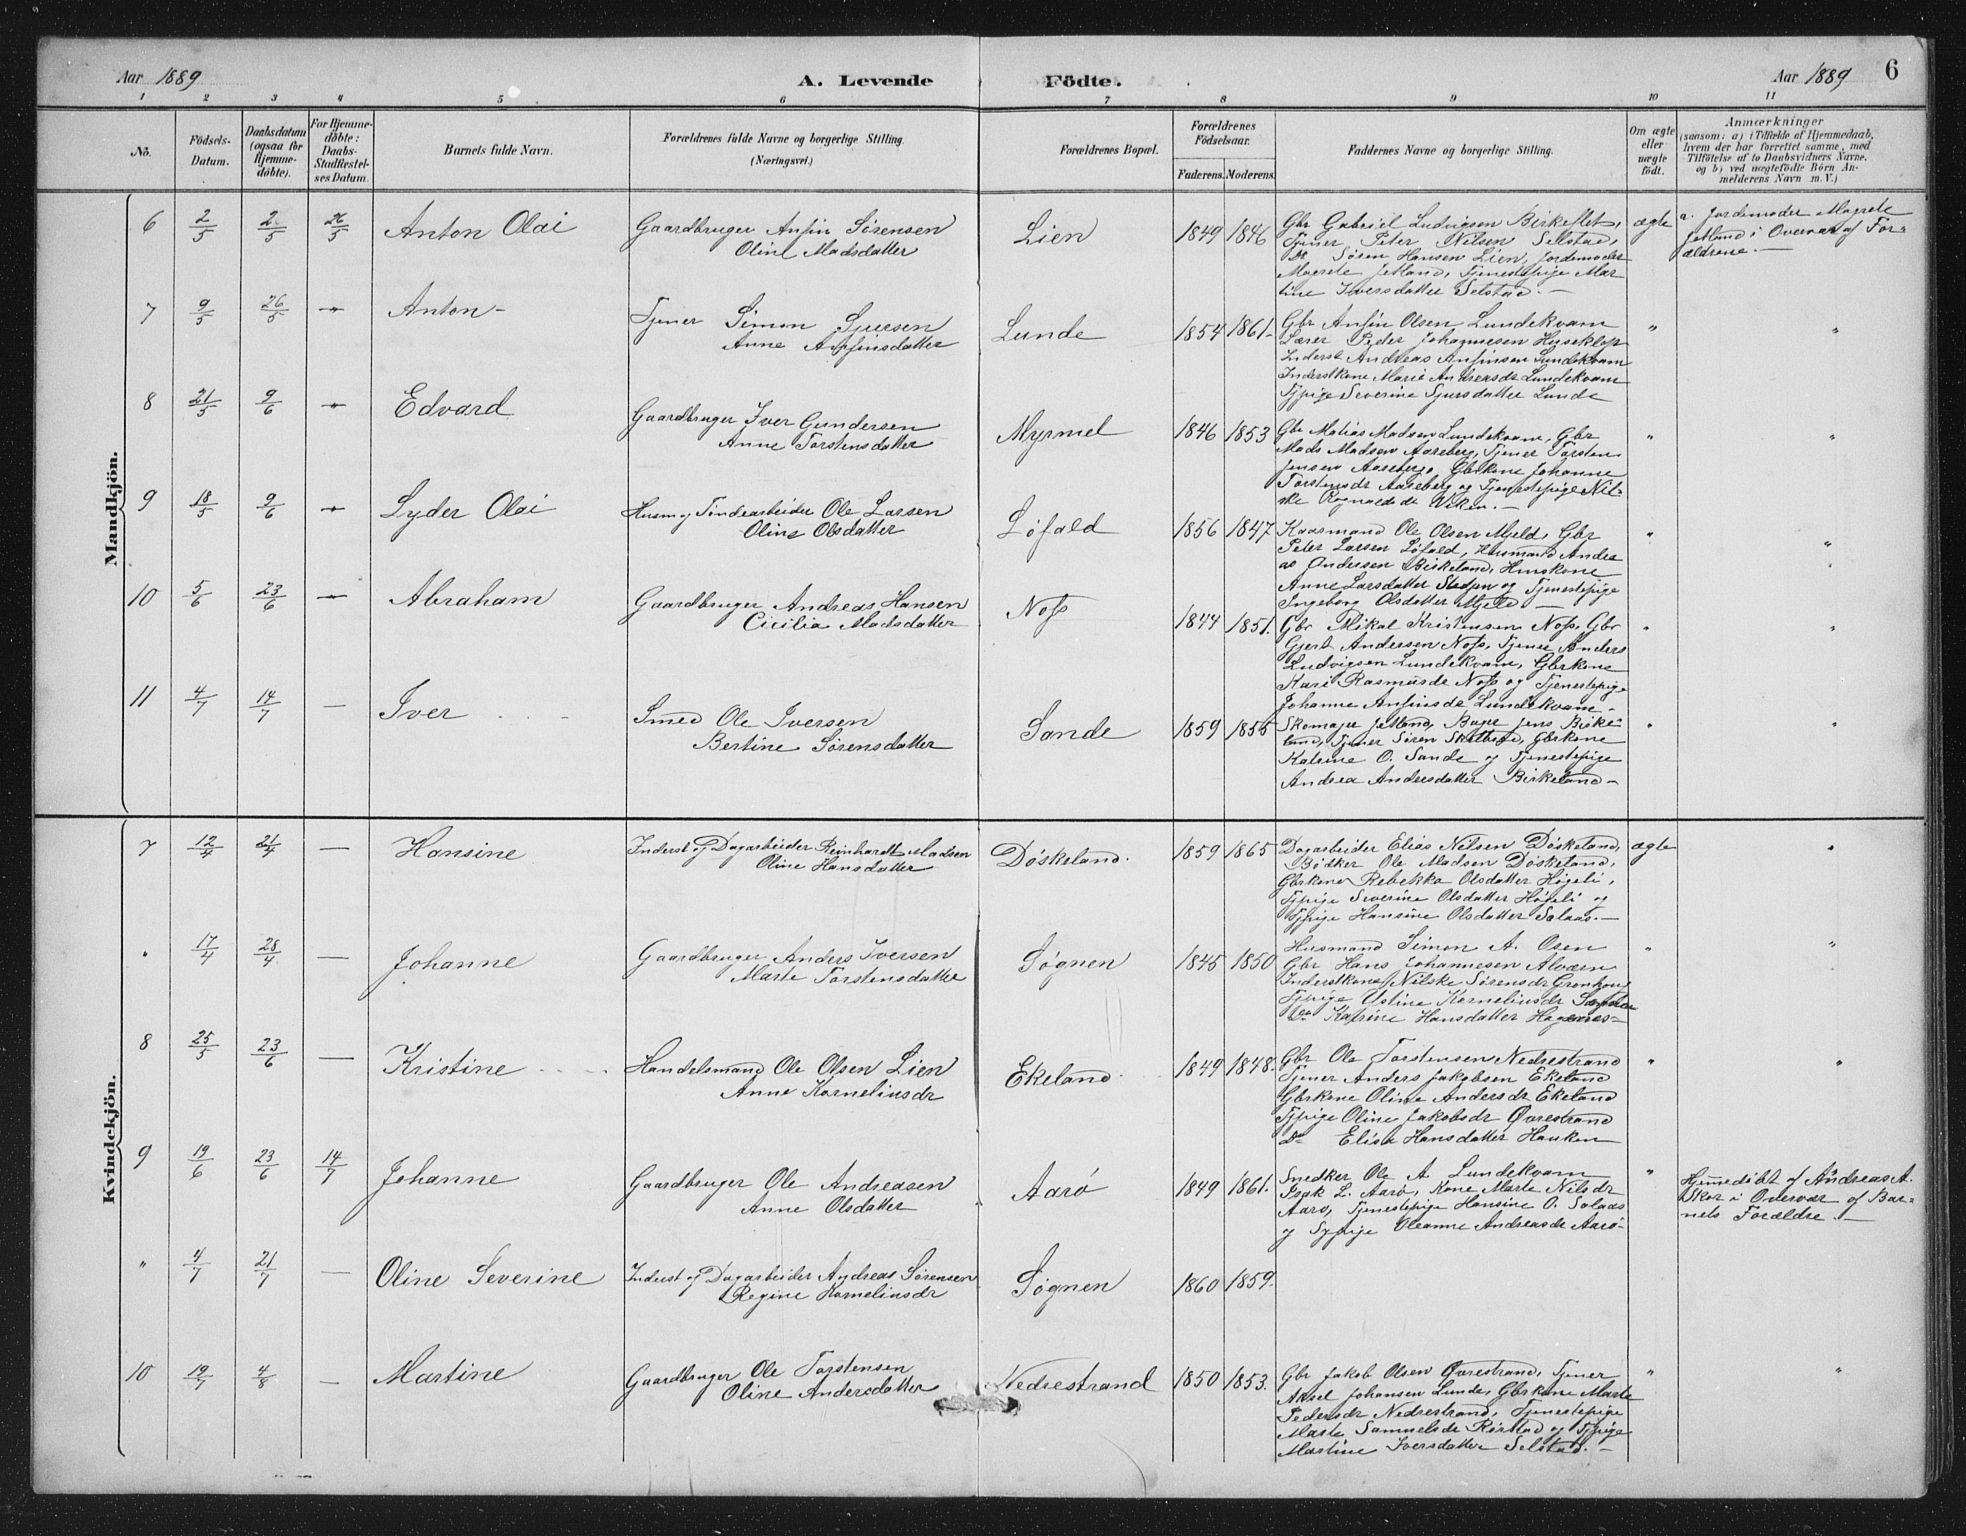 Aar 1889
A. Levende Födte.
Aar 1889 6
1 2 3 4 5 6 7 8 9 10 11
No.
Födsels-
Datum.
Daabsdatum
(ogsaa for
Hjemme-
döbte).
For Hjemme-
döbte:
Daabs-
Stadfæstel-
ses Datum.
Barnets fulde Navn.
Forældrenes fulde Navne og borgerlige Stilling.
(Næringsvei.)
Forældrenes Bopæl.
Forældrenes
Födselsaar.
Faderens. Moderens.
Faddernes Navne og borgerlige Stilling.
Om ægte
eller
uægte
födt.
Anmærkninger
(saasom: a) i Tilfælde af Hjemmedaab,
hvem der har forrettet samme, med
Tilföielse af to Daabsvidners Navne,
og b) ved uægtefödte Börn An-
melderens Navn m. V.)
Mandkjön.
6 2/5 2/5 26/5 Anton Olai
Gaardbruger Anfin Sørensen
Oline Madsdatter
Lien 1849 1846
Gbr Gabriel Ludvigsen Birkeflet,
Tjener Peter Nilsen Selstad,
Do Sören Hansen Lien, Jordemoder
Magrete Jetland, Tjenestepige Mar
tine Iversdatter Selstad. —
ægte
a. Jordemoder Magrete
Jetland i Overvær af For-
ældrene. —
7 9/5 26/5 " Anton -
Tjener Simon Sjursen
Anne Anfinsdatter
Lunde 1854 1861-
Gbr Anfin Olsen Lundekvam
Lærer Peder Johannesen Huseklep
Inderst Andreas Anfinsen Lundekvam
Inderstkone Marie Andreasdr Lundekvam
Tjpige Severine Sjursdatter Lunde
" "
8 21/5 9/6 " Edvard
Gaardbruger Iver Gundersen
Anne Torstensdatter
Myrmel 1846 1853
Gbr Matias Madsen Lundekvam, Gbr
Mads Madsen Aareberg, Tjener Torsten
Jensen Aareberg, Gbrkone Johanne
Torstensdr Aareberg og Tjenestepige Nil-
ske Ragnaldsdr Viken. —
" "
9 18/5 9/6 " Lyder Olai
Husm og Töndearbeider Ole Larsen
Oline Olsdatter
Löfald 1856 1847
Kaarmand Ole Olsen Mjeld, Gbr
Peter Larsen Löfald, Husmand Andre
as Andersen Birkeland, Huskone
Anne Larsdatter og Tjenestepige
Ingeborg Olsdatter Mjeld —
" "
10 5/6 23/6 " Abraham
Gaardbruger Andreas Hansen
Cicilia Madsdatter
Noss 1844 1851.
Gbr Mikal Kristensen Noss, Gbr
Gjert Andersen Noss, Tjener Anders
Ludvigsen Lundekvam, Gbrkone
Kari Rasmusdr Noss og Tjenestepige
Johanne Anfinsdr Lundekvam -
" "
11 4/7 14/7 — Iver
Smed Ole Iversen
Bertine Sörensdatter
Sande 1859 1855
Skomager Jetland, Jens Birke-
land, Tjener Sören , Gbrkone
Katrine O. Sande og Tjenestepige
Andrea Andersdatter Birkeland -
" "
Kvindekjön.
7 12/4 21/4 — Hansine
Inderst og Dagarbeider Reinhardt Madsen
Oline Hansdatter
Döskeland. 1859 1865
Dagarbeider Elias Nilsen Döskeland,
Bödker Ole Madsen Döskeland,
Gbrkone Rebekka Olsdatter Högeli,
Tjpige Severine Olsdatter Högeli og
Tjpige Hansine Olsdatter Solaas. —
ægte "
" 17/4 28/4 — Johanne
Gaardbruger Anders Iversen
Marte Torstensdatter
Sögnen 1845 1850
Husmand Simon A. Osen
Gbr Hans Johannesen Alværn
Inderstkone Nilske Sörensdr
Tjpige Kornelinsdr
Do Katrine Hansdatter -
" "
8 25/5 23/6 — Kristine
Handelsmand Ole Olsen Lien
Anne Kornelinsdr
Ekeland 1849 1848.
Gbr Ole Torstensen Nedrestrand
Tjener Anders Jakobsen Ekeland
Gbrkone Oline Andersdr Ekeland
Tjpige Oline Jakobsdr Övrestrand
Do Elisa Hansdatter Hauken
" "
9 19/6 23/6 14/7 Johanne
Gaardbruger Ole Andreasen
Anne Olsdatter
Aarö 1849 1861.
Snedker Ole A Lundekvam
Isak L. Aarö, Kone Marte Nilsdr
Aarö, Tjenestepige Hansine O. Solaas
og Tjpige Oleanne Andreasdr Aarö-
"
Hjemmedöbt af Andreas A.
Skor i Overvær af Bar-
nets Forældre. —
" 4/7 21/7 — Oline Severine
Inderst og Dagarbeider Andreas Sörensen
Regine Kornelinsdr
Sögnen 1860 1859.
10 19/7 4/8 — Martine
Gaardbruger Ole Torstensen
Oline Andersdatter
Nedrestrand 1850 1853.
Gbr Jakob Olsen Övrestrand, Tjener
Aksel Johansen Lunde, Gbrkone Marte
Pedersdr Nedrestrand, Tjenestepige
Marte Samuelsdr og Tjpige
Martine Iversdatter Selstad. —
" "